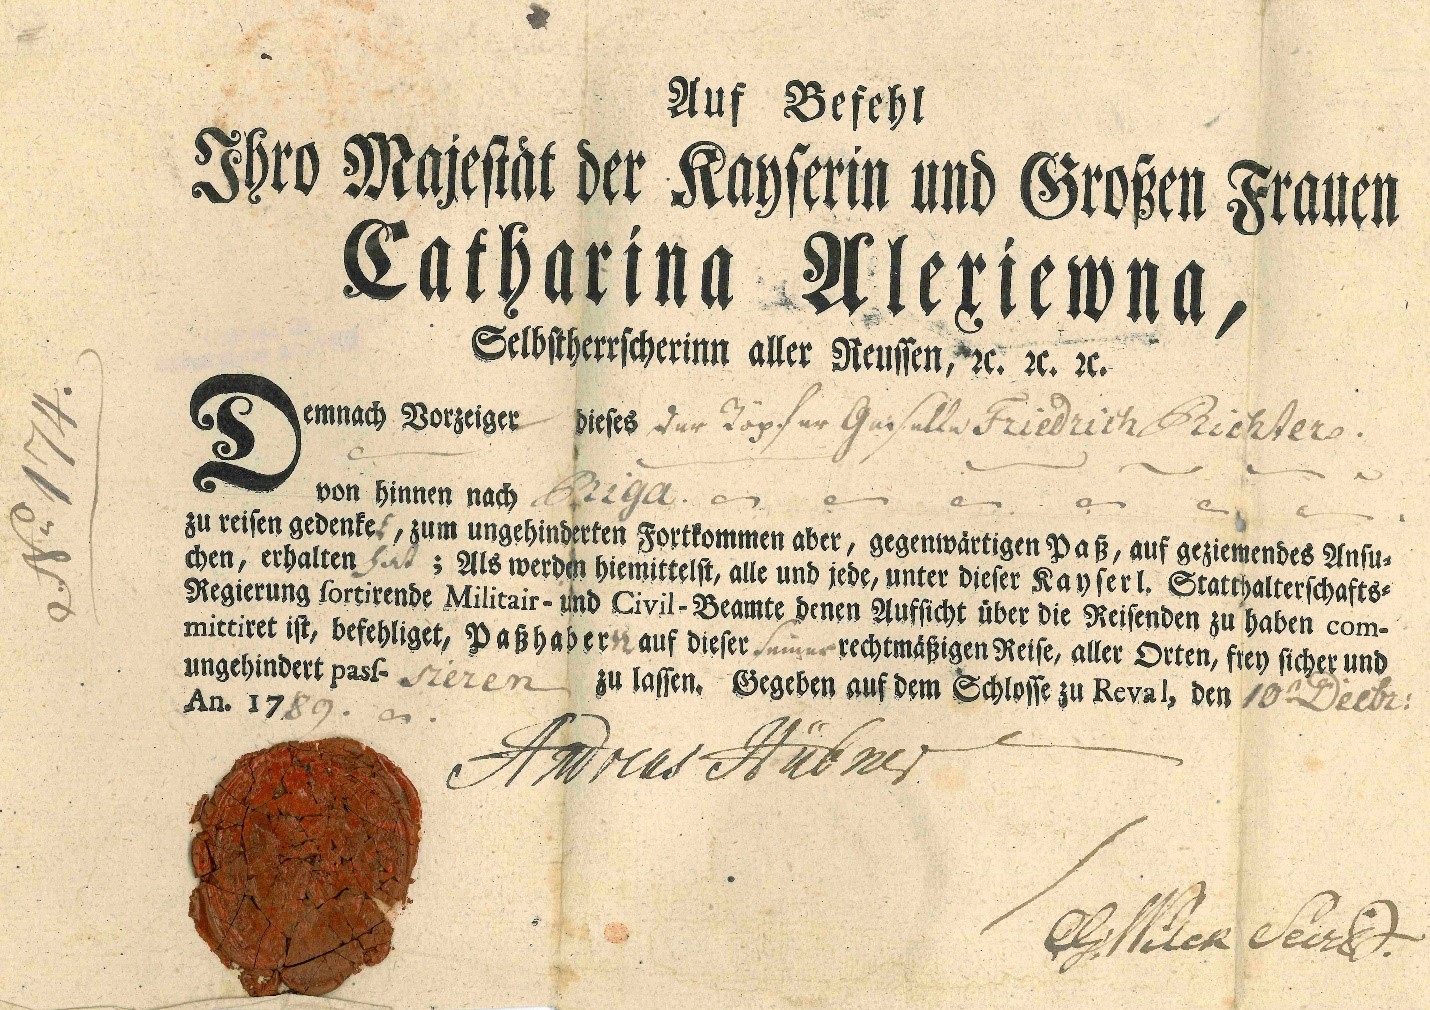 Auf Befehl
Ihro Majestät der Kayserin und Großen Frauen
Catharina Alexiewna,
Selbstherrscherinn aller Reussen, ꝛc. ꝛc. ꝛc.
Demnach Vorzeiger dieses der Töpfer Geselle Friedrich Richter.
von hinnen nach Riga.
zu reisen gedenket, zum ungehinderten Fortkommen aber, gegenwärtigen Paß, auf geziemendes Ansu-
chen, erhalten hat; Als werden hiemittelst, alle und jede, unter dieser Kayserl. Statthalterschafts-
Regierung sortirende Militair- und Civil-Beamte denen Aufsicht über die Reisenden zu haben com-
mittiret ist, befehliget, Paßhabern auf dieser seiner rechtmäßigen Reise, aller Orten, frey sicher und
ungehindert pass- sieren zu lassen. Gegeben auf dem Schlosse zu Reval, den 10t Decbr:
An. 1789.
Andreas Hübner
Secret.
No. 174.